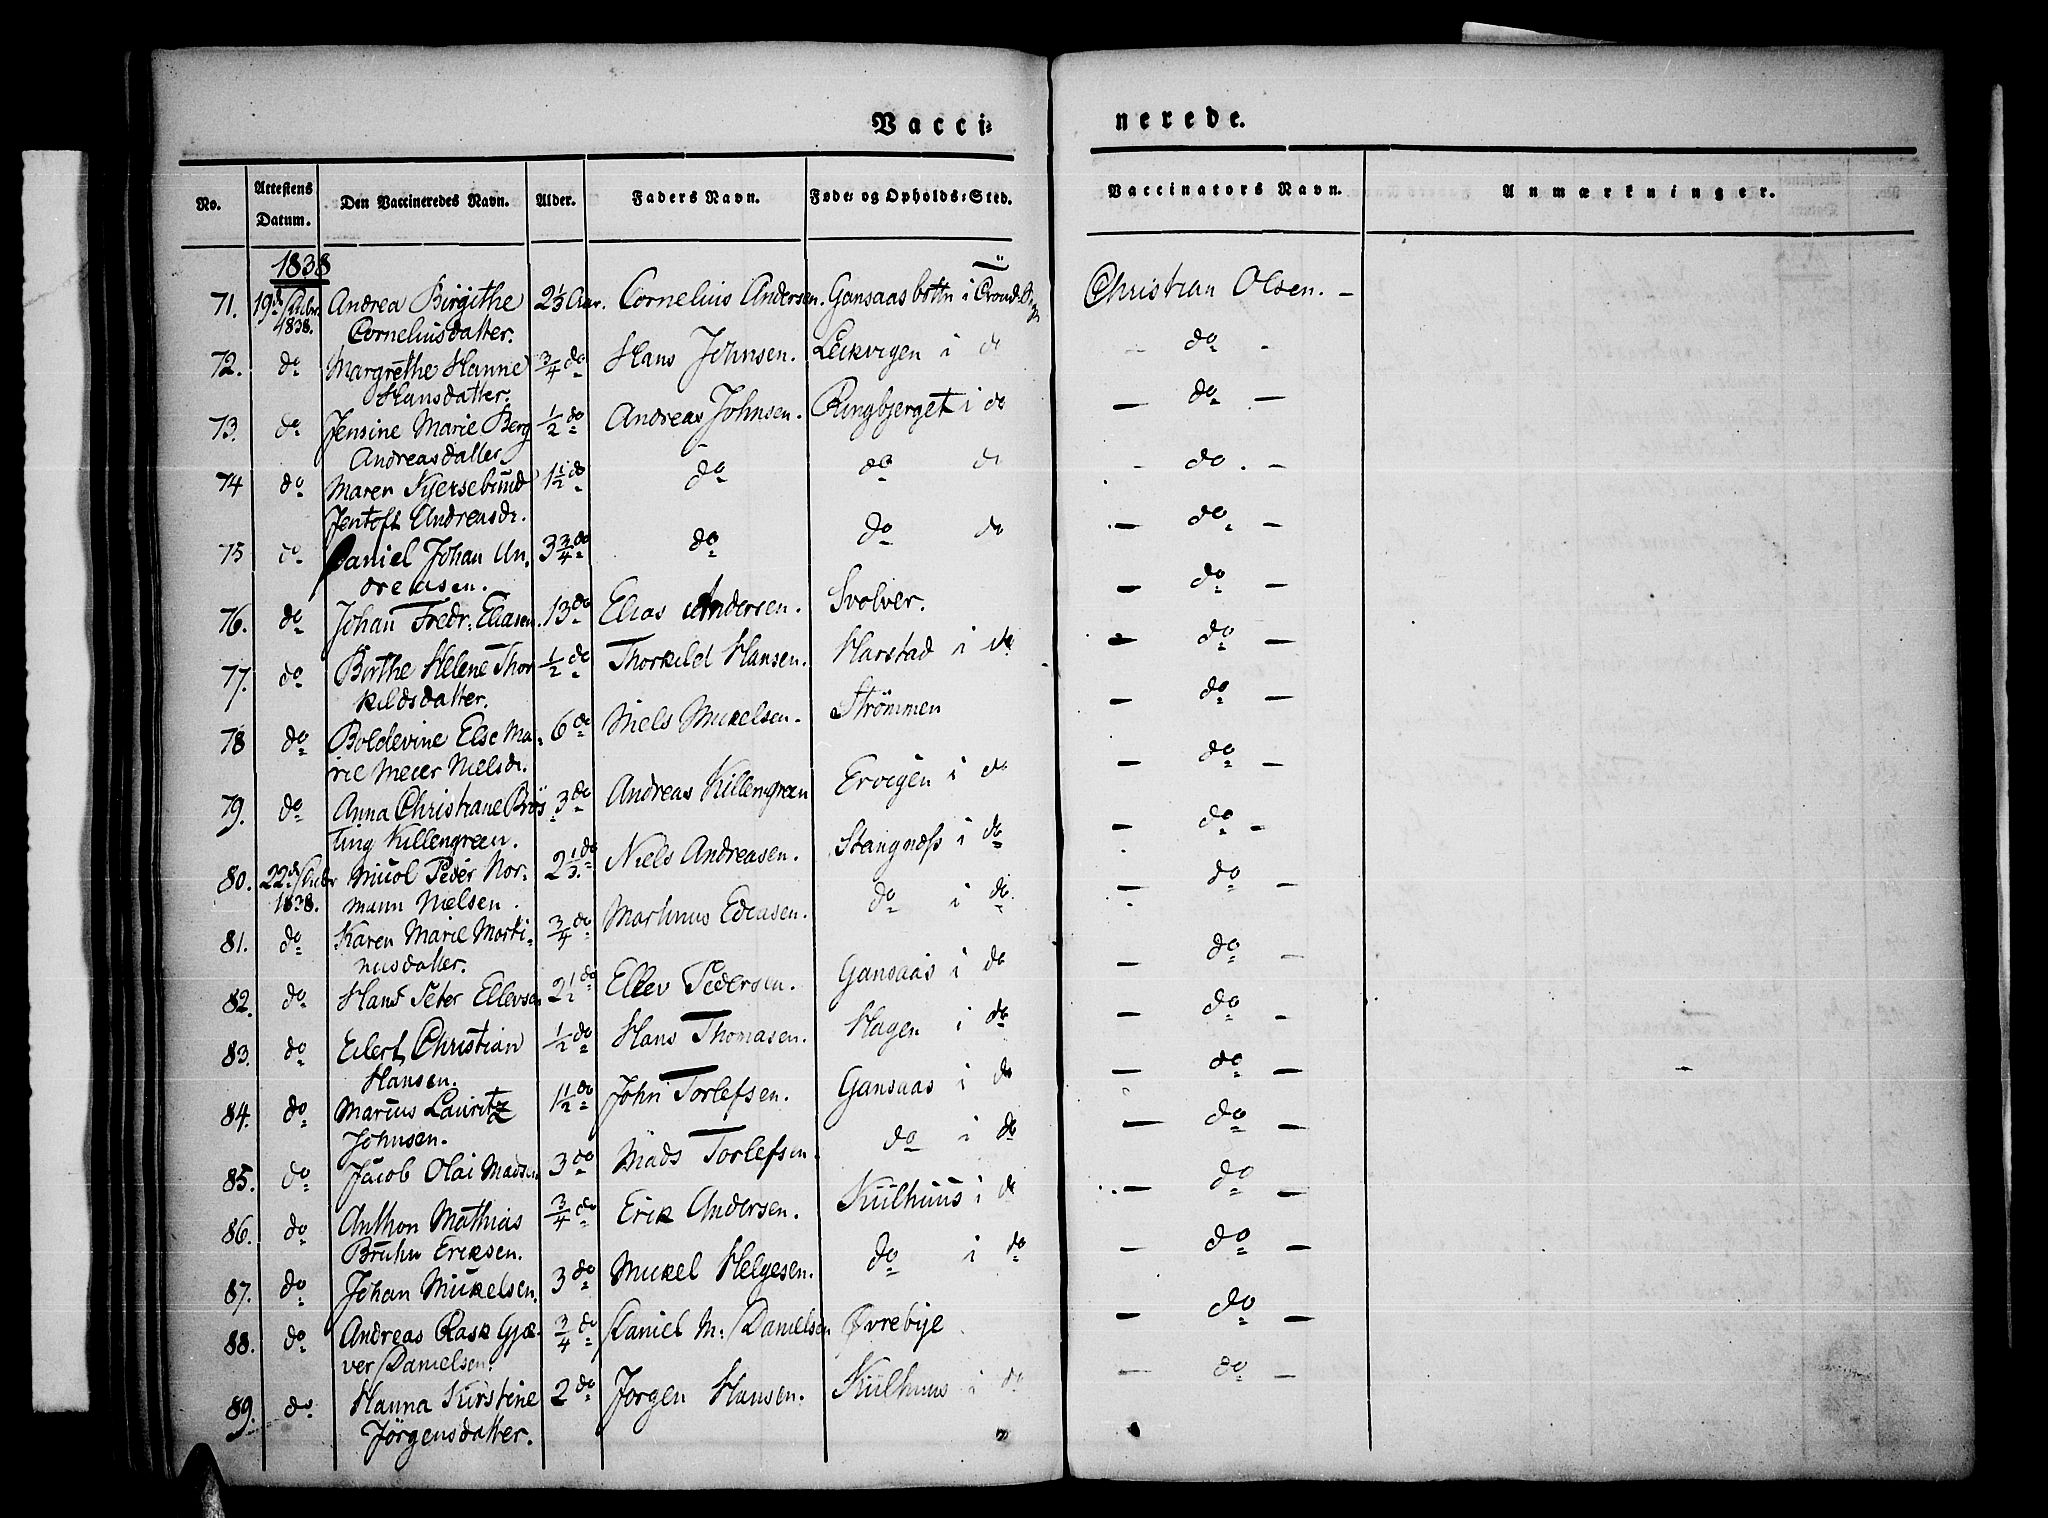 Vacci-
nerede.
No. Attestens Datum. Den Vaccineredes Navn. Alder. Faders Navn. Føde- og Opholds-Sted. Vaccinators Navn. Anmærkninger.
1838
71. 19d 1838. Andrea Birgithe 2 1/3 Aar. Cornelius Andersen. Gansaas i Christian Olsen. —
Corneliusdatter.
72. do Margrethe Hanne 3/4 do Hans Johnsen. Leikvigen i do — do —
Hansdatter.
73. do Jensine Marie Berg 1/2 do Andreas Johnsen. Ringbjerget i do — do —
Andreasdatter
74 do Maren 1 1/2 do do do do — do. —
Jentoft Andreasdr.
75 do Daniel Johan An- 3 3/4 do do do do — do —
dreasen.
76. do Johan Fredr: Eliasen. 13 do Elias Andersen. Svolver. — do —
77. do Birthe Helene Thor 1/2 do Thorkild Hansen. Harstad i do — do —
kildsdatter.
78 do Boldevine Else Ma- 6 do Niels Mikelsen. Strömmen — do —
rie Meier Nielsdr.
79. do Anna Christiane Brös 3 do Andreas Killengreen Ervigen i do — do —
ting Killengreen.
80. 22d 1838. Nicol Peder Nor- 2 1/3 do Niels Andreasen. Stangnæss i do — do —
mann Nielsen.
81. do Karen Marie Morti- 3/4 do Martinus do i do — do —
nusdatter.
82. do Hans Peter Ellevsen 2 1/2 do Ellev Pedersen. Gansaas i do — do —
83. do Eilert Christian 1/2 do Hans Thomasen. Hagen i do — do —
Hansen.
84. do Marius Lauritz 1 1/2 do John Torlefsen. Gansaas i do — do —
Johnsen.
85. do Jacob Olai Madsen 3 do Mads Torlefsen. do i do — do —
86. do Anthon Mathias 3/4 do Erik Andersen. Kiilhuus i do — do —
Bruhn Eriksen.
87. do Johan Mikelsen. 3 do Mikel Helgesen. do i do — do —
88. do Andreas Rask Gjæ- 3/4 do Daniel M: Danielsen Øvrebye — do —
ver Danielsen.
89. do Hanna Kirstine 2 do Jorgen Hansen. Kiilhuus i do — do —
Jörgensdatter.